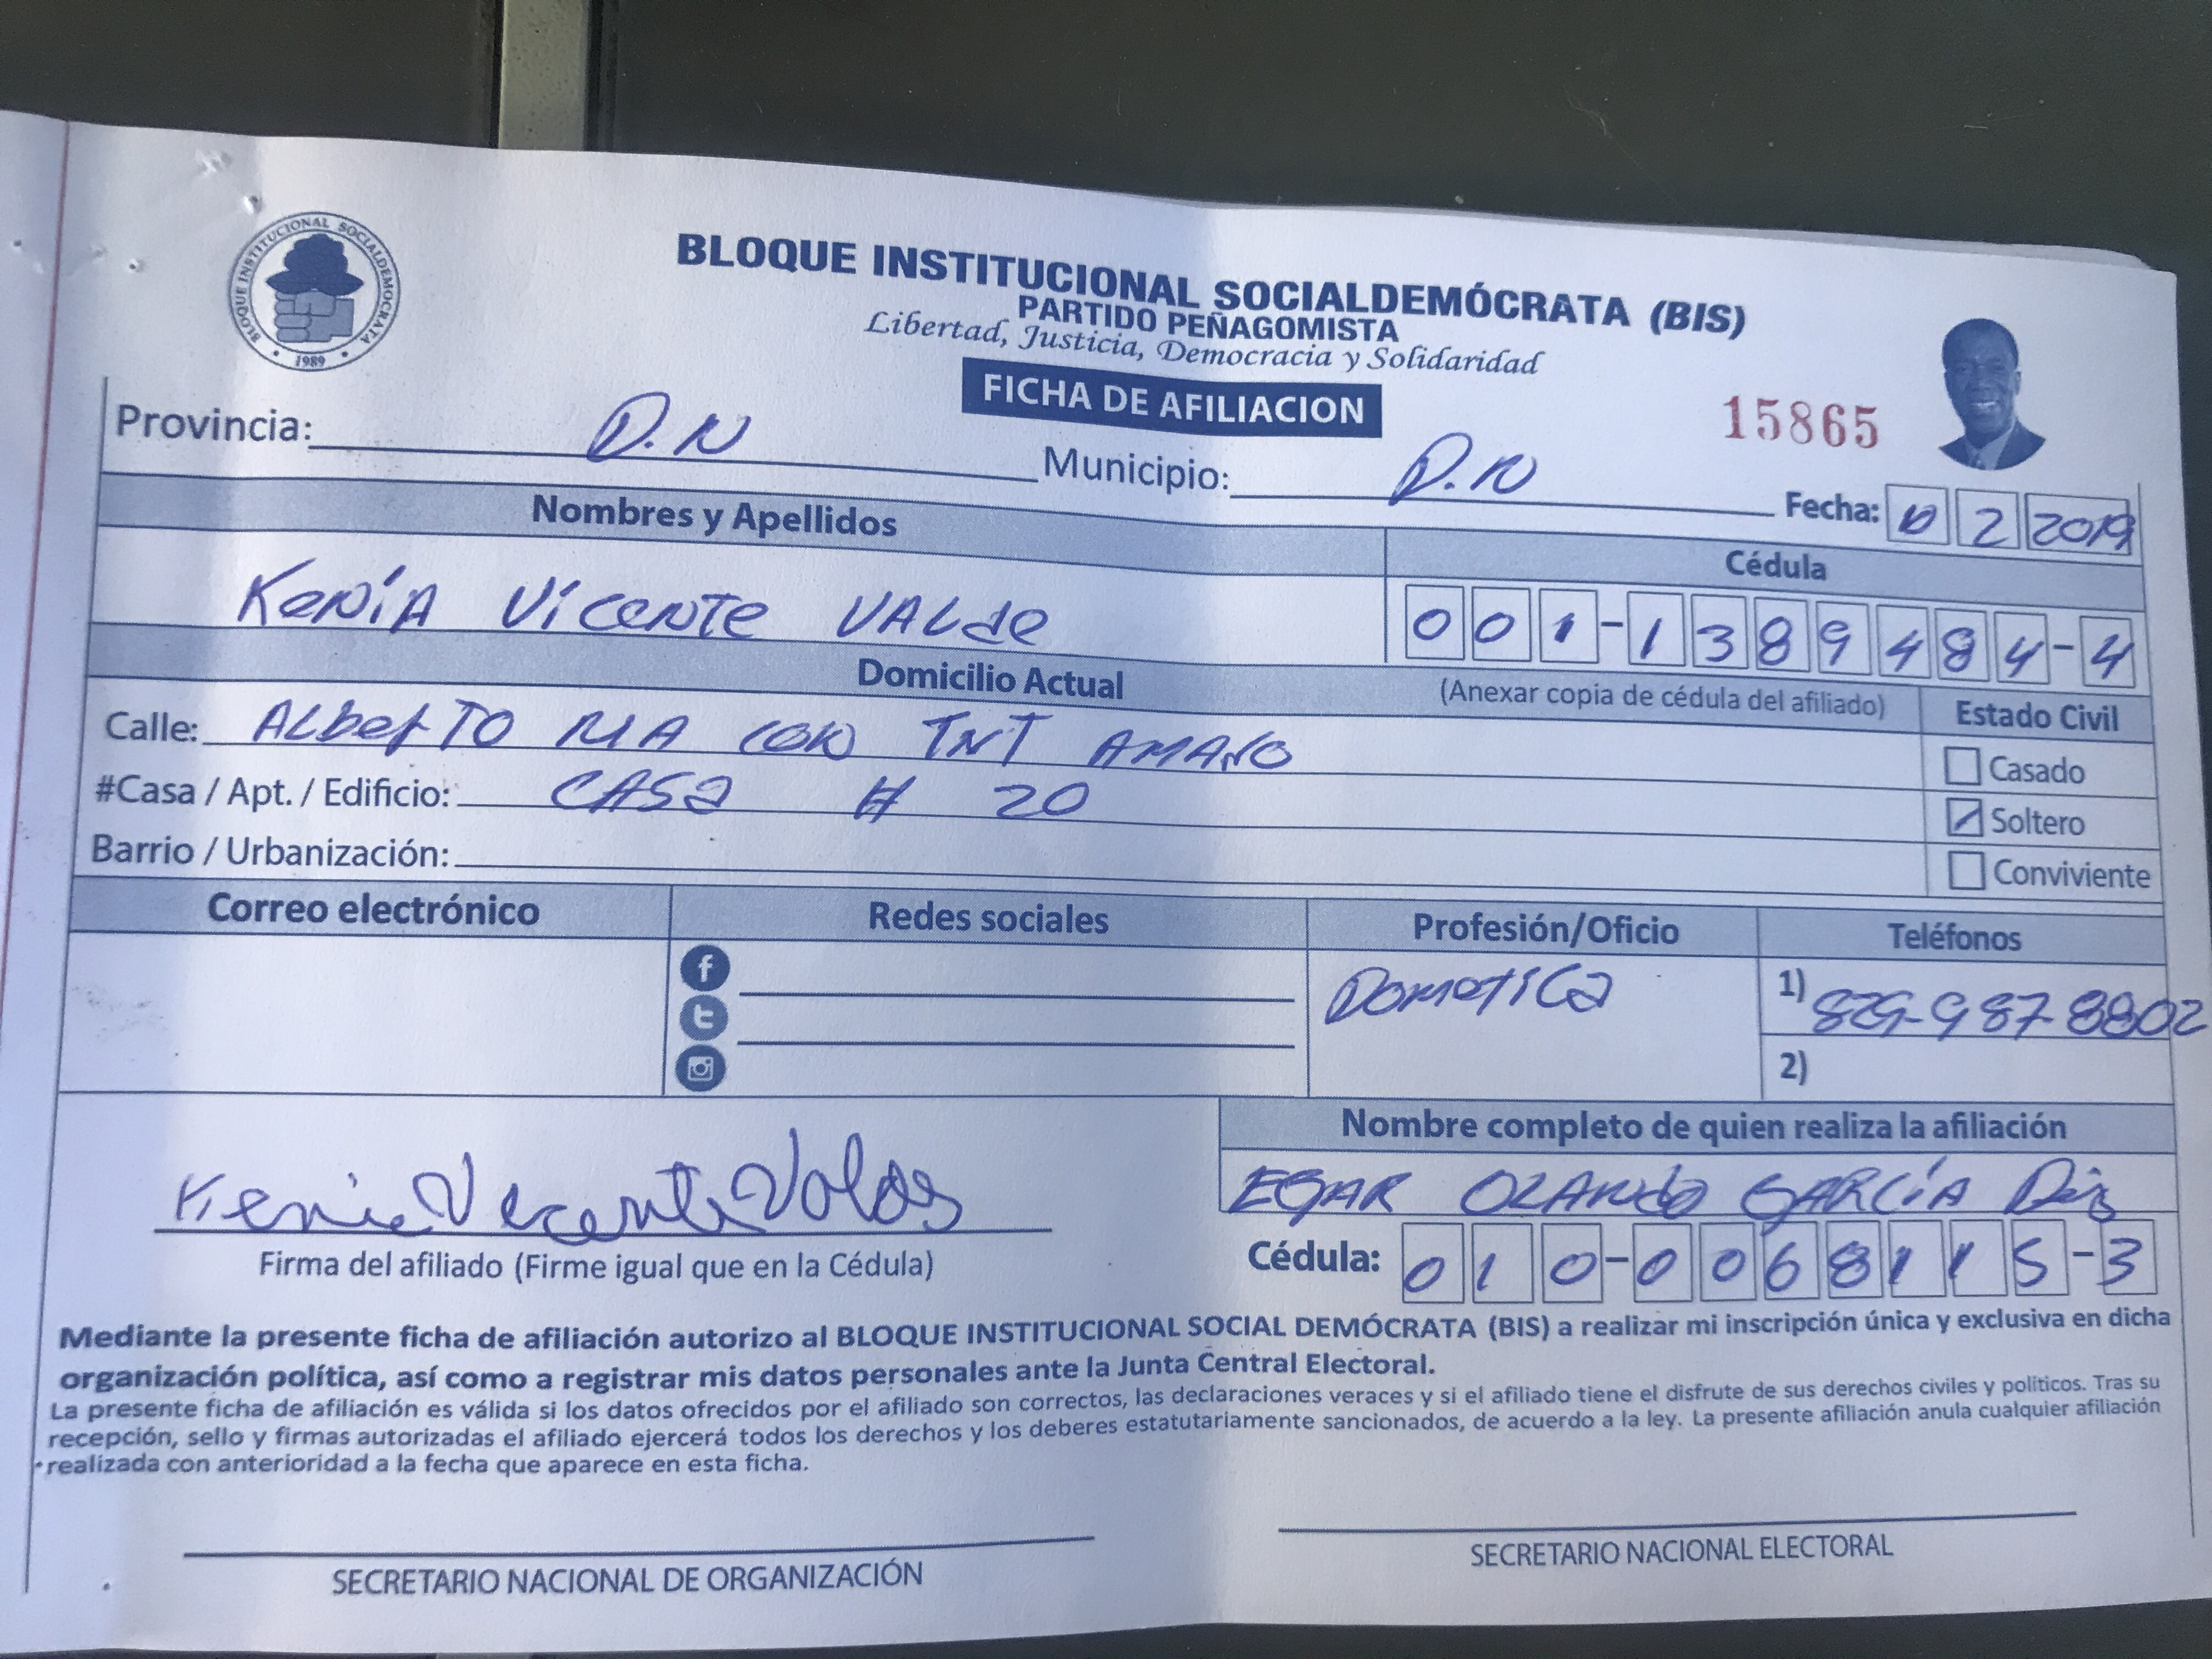 BLOQUE INSTITUCIONAL SOCIALDEMOCRATA
1989
BLOQUE INSTITUCIONAL SOCIALDEMÓCRATA (BIS)
PARTIDO PEÑAGOMISTA
Libertad, Justicia, Democracia y Solidaridad
FICHA DE AFILIACION
15865
Provincia: D.N Municipio: D.N Fecha: 10 2 2019
Nombres y Apellidos Cédula
KeNiA ViceNTe VALde 001-1389484-4
Domicilio Actual (Anexar copia de cédula del afiliado) Estado Civil
Calle: ALbeRTO MA CON TNT AMARO
Casado
#Casa / Apt. / Edificio: CASa # 20
Soltero
Barrio / Urbanización:
Conviviente
Correo electrónico Redes sociales Profesión/Oficio Teléfonos
DometiCa 1) 829-987-8802
2)
Nombre completo de quien realiza la afiliación
Kenia Vecente Valdes EGAR OLANdo GARCíA
Firma del afiliado (Firme igual que en la Cédula) Cédula: 010-0068115-3
Mediante la presente ficha de afiliación autorizo al BLOQUE INSTITUCIONAL SOCIAL DEMÓCRATA (BIS) a realizar mi inscripción única y exclusiva en dicha
organización política, así como a registrar mis datos personales ante la Junta Central Electoral.
La presente ficha de afiliación es válida si los datos ofrecidos por el afiliado son correctos, las declaraciones veraces y si el afiliado tiene el disfrute de sus derechos civiles y políticos. Tras su
recepción, sello y firmas autorizadas el afiliado ejercerá todos los derechos y los deberes estatutariamente sancionados, de acuerdo a la ley. La presente afiliación anula cualquier afiliación
realizada con anterioridad a la fecha que aparece en esta ficha.
SECRETARIO NACIONAL DE ORGANIZACIÓN SECRETARIO NACIONAL ELECTORAL